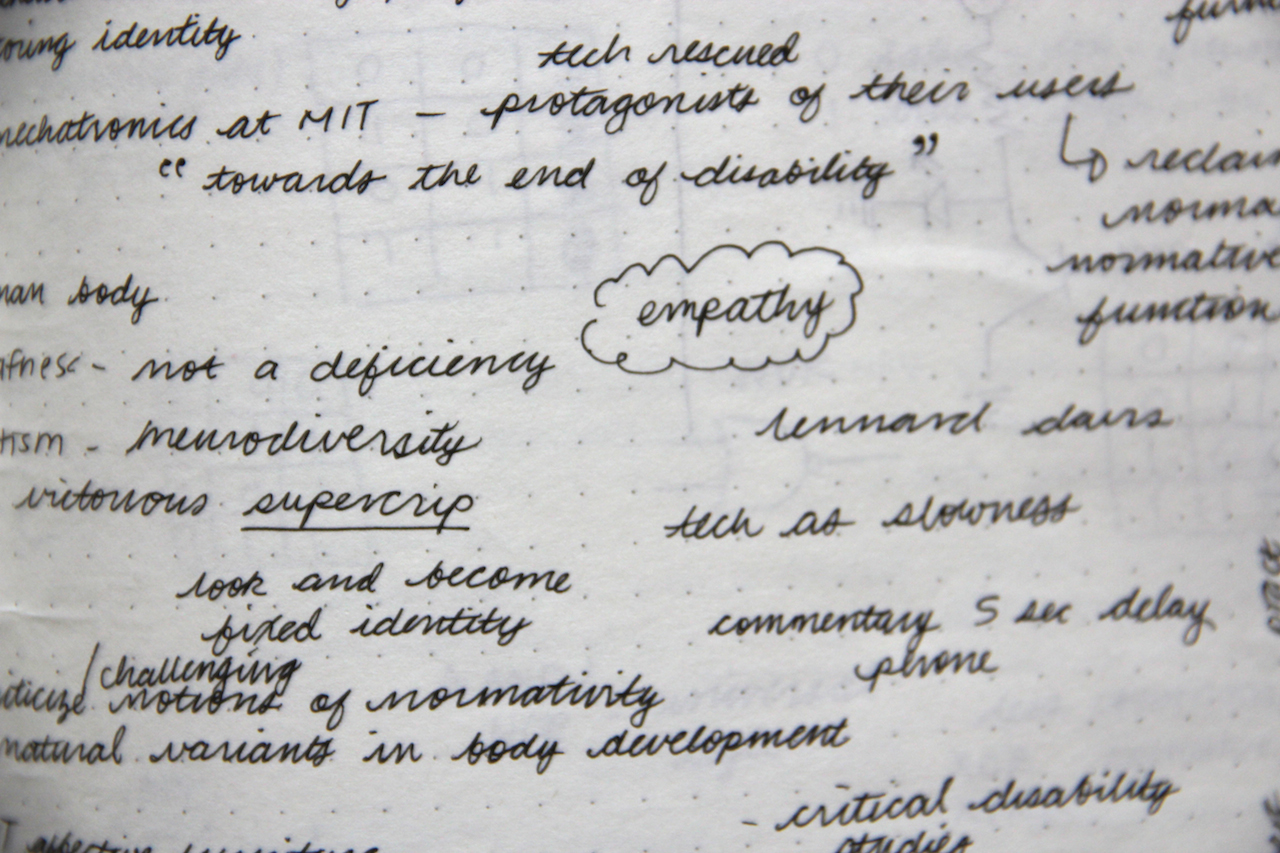 identity
tech rescued
mechatronics at MIT - protagonists of their users
" towards the end of disability "
↳ reclaim
norma
normative
function
body
empathy
- not a deficiency
- neurodiversity
lennard davis
supercrip
tech as slowness
look and become
fixed identity
commentary 5 sec delay
phone
/challenging
notions of normativity
natural variants in body development
- critical disability
studies